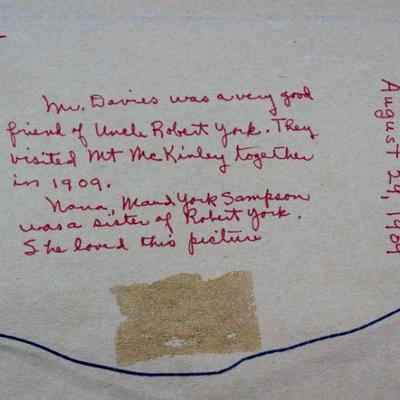 Mr. Davies was a very good
friend of Uncle Robert York. They
visited Mt McKinley together
in 1909.
Nana, Maud York Sampson
was a sister of Robert York.
She loved this picture
August 29, 1989